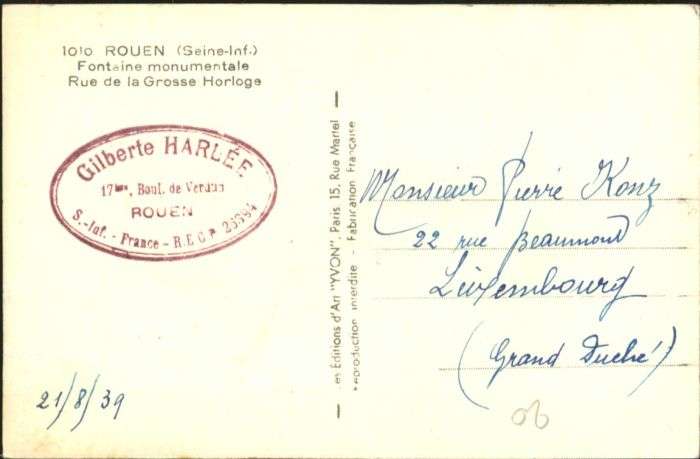 1010 ROUEN (Seine-Inf.)
Fontaine monumentale
Rue de la Grosse Horloge
Gilberte HARLÉE
17bis, Boul. de Verdun
ROUEN
S.-Inf. - France - R.E.C.P. 26394
21/8/39
Les Editions d'Art "YVON", Paris 15, Rue Martel
Reproduction interdite - Fabrication Française
Monsieur Pierre Konz
22 rue Beaumont
Luxembourg
(Grand Duché)